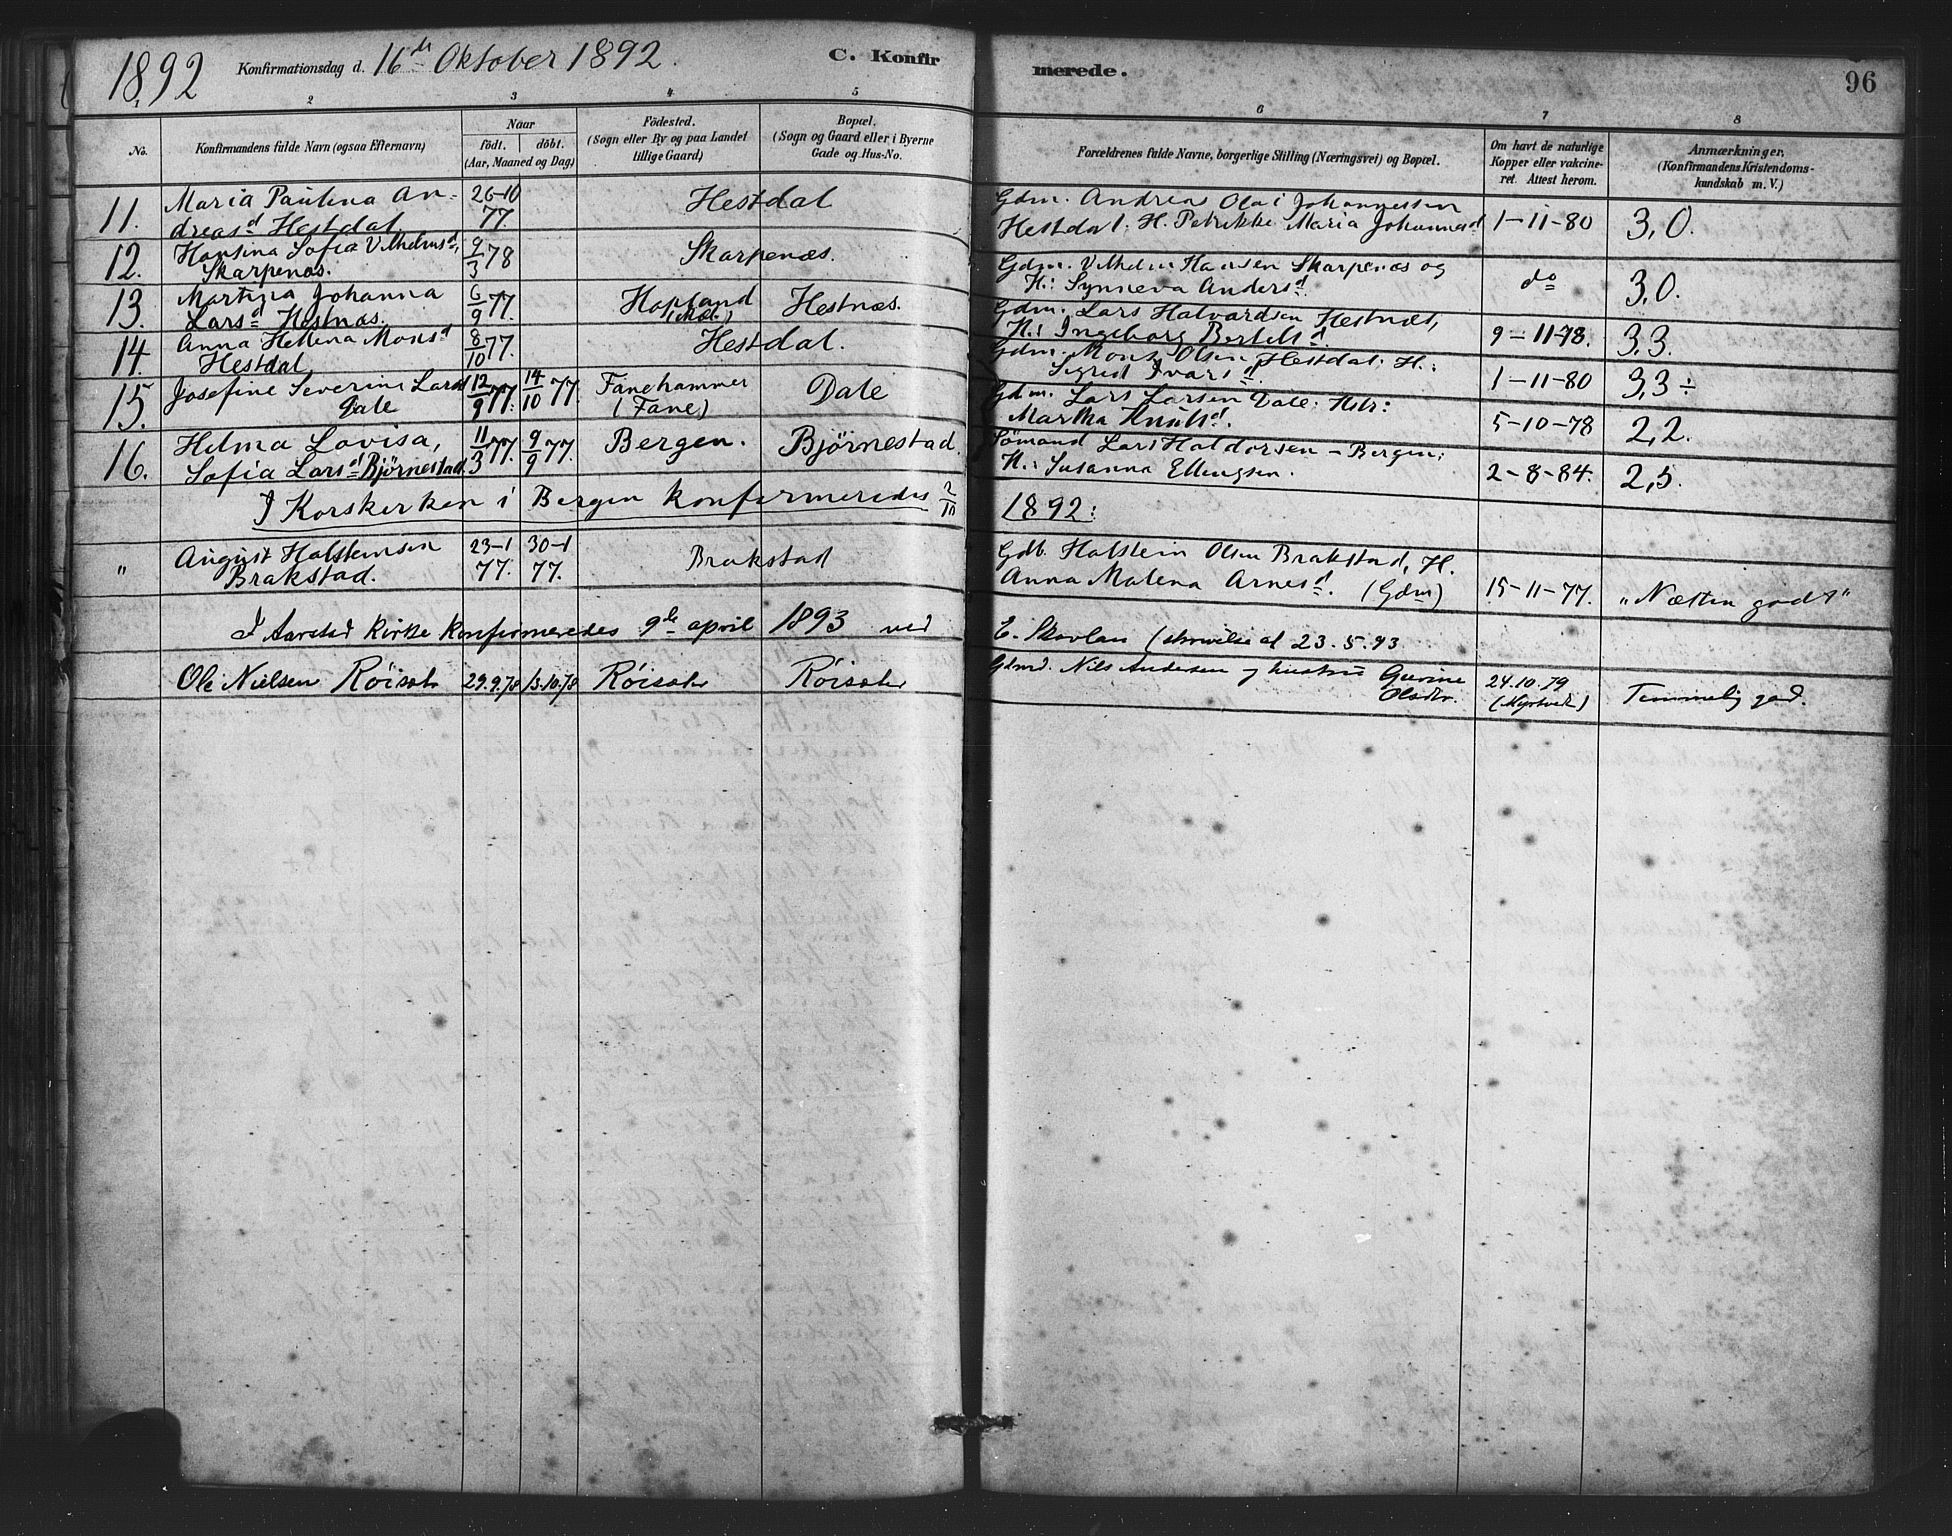 1892 Konfirmationsdag d. 16de Oktober 1892. C. Konfirmerede. 96
2 3 4 5 6 7 8
No.
Konfirmandens fulde Navn (ogsaa Efternavn)
Naar
födt. döbt.
(Aar, Maaned og Dag)
Födested.
(Sogn eller By og paa Landet
tillige Gaard)
Bopæl.
(Sogn og Gaard eller i Byerne
Gade og Hus-No.
Forældrenes fulde Navne, borgerlige Stilling (Næringsvei) og Bopæl.
Om havt de naturlige
Kopper eller vakcine-
ret. Attest herom.
Anmærkninger,
(Konfirmandens Kristendoms-
kundskab m. V.)
11. Maria Paulina An- 26-10 Hestdal Gdm. Andreas Olai Johannessen
dreasd Hestdal. 77. Hestdal. H. Petrikke Maria Johannesd 1-11-80 3,0.
12. Hansina Sofia Vilhelmsd, 9/3 78 Skarpenæs. Gdm. Vilhelm Hansen Skarpenæs og do 3,0.
Skarpenæs. H.: Synneva Andersd.
13. Martina Johanna 6/9 77. Hopland Hestnæs. Gdm. Lars Halvardsen Hestnæs, 9-11-78. 3,3.
Larsd Hestnæs. H.: Ingeborg Bertelsd.
14. Anna Hellena Monsd 8/10 77. Hestdal. Gdm. Mons Olsen Hestdal. H.: 1-11-80 3,3÷
Hestdal Sigred Ivarsd.
15. Josefine Severine Larsd 12/9 77. 14/10 77. Fanehammer Dale Gdm. Lars Larsen Dale. Hstr: 5-10-78 2,2.
Dale (Fane) Martha Knutsd.
16. Helma Lovisa, 11/3 77. 9/9 77. Bergen. Bjørnestad. Sømand Lars Haldorsen - Bergen; 2-8-84. 2,5.
Sofia Larsd Bjørnestad. H.: Susanna Ellingsen.
I Korskirken i Bergen konfirmeredes 2/10 1892:
" August Halsteinsen 23-1 30-1 Brakstad Gdb. Halstein Olsen Brakstad, H.
Brakstad. 77. 77. Anna Malena Arnesd. (Gdm) 15-11-77. "Næsten godt"
I Aarstad Kirke konfirmeredes 9de april 1893 ved E. Skavlan (skrivelse af 23.5.93
Ole Nielsen Röiset 29.9.78 13.10.78 Röiset Röiset Gdmd. Nils Andersen og hustru Gurine 24.10.79 Temmelig god.
Olsdtr. (Myrtvedt)